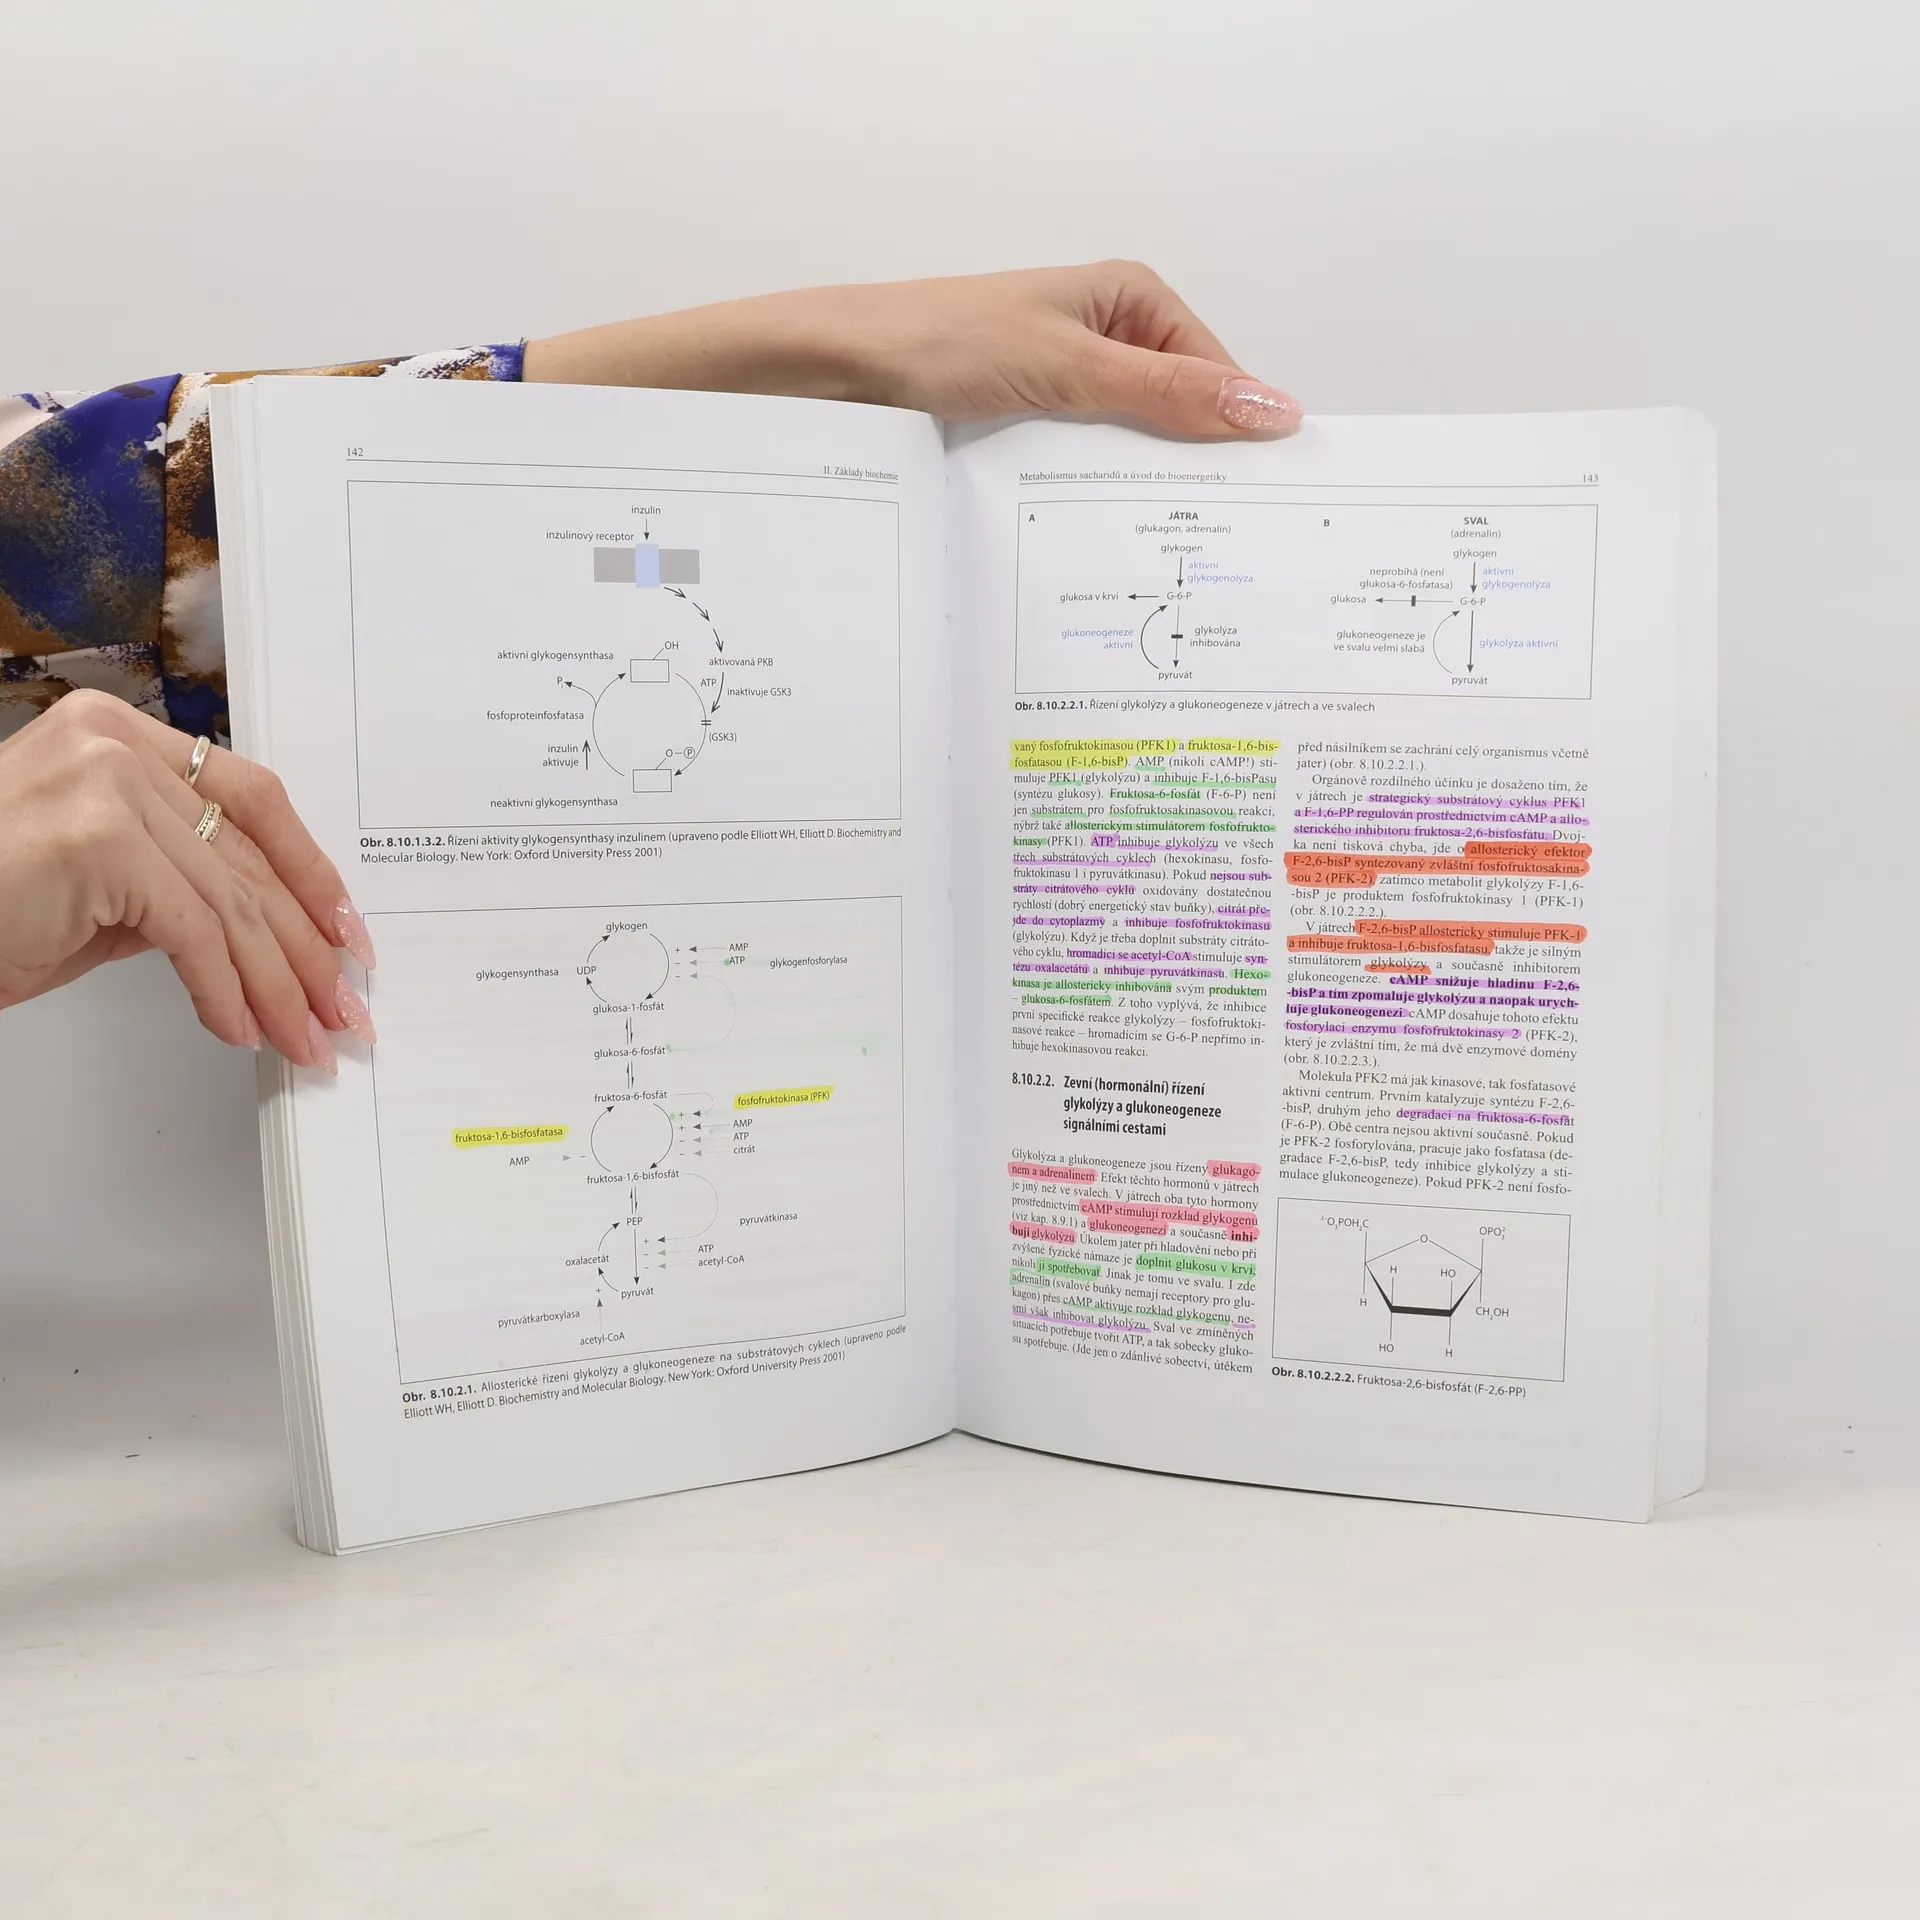 142
II. Základy biochemie
inzulin
inzulinový receptor
OH
aktivní glykogensynthasa
aktivovaná PKB
Pi
ATP
inaktivuje GSK3
fosfoproteinfosfatasa
(GSK3)
inzulin
aktivuje
O–P
neaktivní glykogensynthasa
Obr. 8.10.1.3.2. Řízení aktivity glykogensynthasy inzulinem (upraveno podle Elliott WH, Elliott D. Biochemistry and
Molecular Biology. New York: Oxford University Press 2001)
glykogen
+ AMP
– ATP
glykogenfosforylasa
glykogensynthasa
UDP
–
glukosa-1-fosfát
glukosa-6-fosfát
fruktosa-6-fosfát
fosfofruktokinasa (PFK)
+
+ AMP
– ATP
– citrát
fruktosa-1,6-bisfosfatasa
AMP –
fruktosa-1,6-bisfosfát
PEP
pyruvátkinasa
+
– ATP
– acetyl-CoA
oxalacetát
pyruvát
+
pyruvátkarboxylasa
acetyl-CoA
Obr. 8.10.2.1. Allosterické řízení glykolýzy a glukoneogeneze na substrátových cyklech (upraveno podle
Elliott WH, Elliott D. Biochemistry and Molecular Biology. New York: Oxford University Press 2001)
Metabolismus sacharidů a úvod do bioenergetiky
143
A
JÁTRA
(glukagon, adrenalin)
glykogen
aktivní
glykogenolýza
glukosa v krvi
G-6-P
glukoneogeneze
aktivní
glykolýza
inhibována
pyruvát
B
SVAL
(adrenalin)
glykogen
neprobíhá (není
glukosa-6-fosfatasa)
aktivní
glykogenolýza
glukosa
G-6-P
glukoneogeneze je
ve svalu velmi slabá
glykolýza aktivní
pyruvát
Obr. 8.10.2.2.1. Řízení glykolýzy a glukoneogeneze v játrech a ve svalech
vaný fosfofruktokinasou (PFK1) a fruktosa-1,6-bis-
fosfatasou (F-1,6-bisP). AMP (nikoli cAMP!) sti-
muluje PFK1 (glykolýzu) a inhibuje F-1,6-bisPasu
(syntézu glukosy). Fruktosa-6-fosfát (F-6-P) není
jen substrátem pro fosfofruktosakinasovou reakci,
nýbrž také allosterickým stimulátorem fosfofrukto-
kinasy (PFK1). ATP inhibuje glykolýzu ve všech
třech substrátových cyklech (hexokinasu, fosfo-
fruktokinasu 1 i pyruvátkinasu). Pokud nejsou sub-
stráty citrátového cyklu oxidovány dostatečnou
rychlostí (dobrý energetický stav buňky), citrát pře-
jde do cytoplazmy a inhibuje fosfofruktokinasu
(glykolýzu). Když je třeba doplnit substráty citráto-
vého cyklu, hromadící se acetyl-CoA stimuluje syn-
tézu oxalacetátu a inhibuje pyruvátkinasu. Hexo-
kinasa je allostericky inhibována svým produktem
– glukosa-6-fosfátem. Z toho vyplývá, že inhibice
první specifické reakce glykolýzy – fosfofruktoki-
nasové reakce – hromadícím se G-6-P nepřímo in-
hibuje hexokinasovou reakci.
8.10.2.2. Zevní (hormonální) řízení
glykolýzy a glukoneogeneze
signálními cestami
Glykolýza a glukoneogeneze jsou řízeny glukago-
nem a adrenalinem. Efekt těchto hormonů v játrech
je jiný než ve svalech. V játrech oba tyto hormony
prostřednictvím cAMP stimulují rozklad glykogenu
(viz kap. 8.9.1) a glukoneogenezi a současně inhi-
bují glykolýzu. Úkolem jater při hladovění nebo při
zvýšené fyzické námaze je doplnit glukosu v krvi,
nikoli ji spotřebovat. Jinak je tomu ve svalu. I zde
adrenalin (svalové buňky nemají receptory pro glu-
kagon) přes cAMP aktivuje rozklad glykogenu, ne-
smí však inhibovat glykolýzu. Sval ve zmíněných
situacích potřebuje tvořit ATP, a tak sobecky gluko-
su spotřebuje. (Jde jen o zdánlivé sobectví, útěkem
před násilníkem se zachrání celý organismus včetně
jater) (obr. 8.10.2.2.1.).
Orgánově rozdílného účinku je dosaženo tím, že
v játrech je strategický substrátový cyklus PFK1
a F-1,6-PP regulován prostřednictvím cAMP a allo-
sterického inhibitoru fruktosa-2,6-bisfosfátu. Dvoj-
ka není tisková chyba, jde o allosterický efektor
F-2,6-bisP syntezovaný zvláštní fosfofruktosakina-
sou 2 (PFK-2), zatímco metabolit glykolýzy F-1,6-
-bisP je produktem fosfofruktokinasy 1 (PFK-1)
(obr. 8.10.2.2.2.).
V játrech F-2,6-bisP allostericky stimuluje PFK-1
a inhibuje fruktosa-1,6-bisfosfatasu, takže je silným
stimulátorem glykolýzy a současně inhibitorem
glukoneogeneze. cAMP snižuje hladinu F-2,6-
-bisP a tím zpomaluje glykolýzu a naopak urych-
luje glukoneogenezi. cAMP dosahuje tohoto efektu
fosforylací enzymu fosfofruktokinasy 2 (PFK-2),
který je zvláštní tím, že má dvě enzymové domény
(obr. 8.10.2.2.3.).
Molekula PFK2 má jak kinasové, tak fosfatasové
aktivní centrum. Prvním katalyzuje syntézu F-2,6-
-bisP, druhým jeho degradaci na fruktosa-6-fosfát
(F-6-P). Obě centra nejsou aktivní současně. Pokud
je PFK-2 fosforylována, pracuje jako fosfatasa (de-
gradace F-2,6-bisP, tedy inhibice glykolýzy a sti-
mulace glukoneogeneze). Pokud PFK-2 není fosfo-
²⁻O₃POH₂C
O
OPO₃²⁻
H
HO
H
CH₂OH
HO
H
Obr. 8.10.2.2.2. Fruktosa-2,6-bisfosfát (F-2,6-PP)